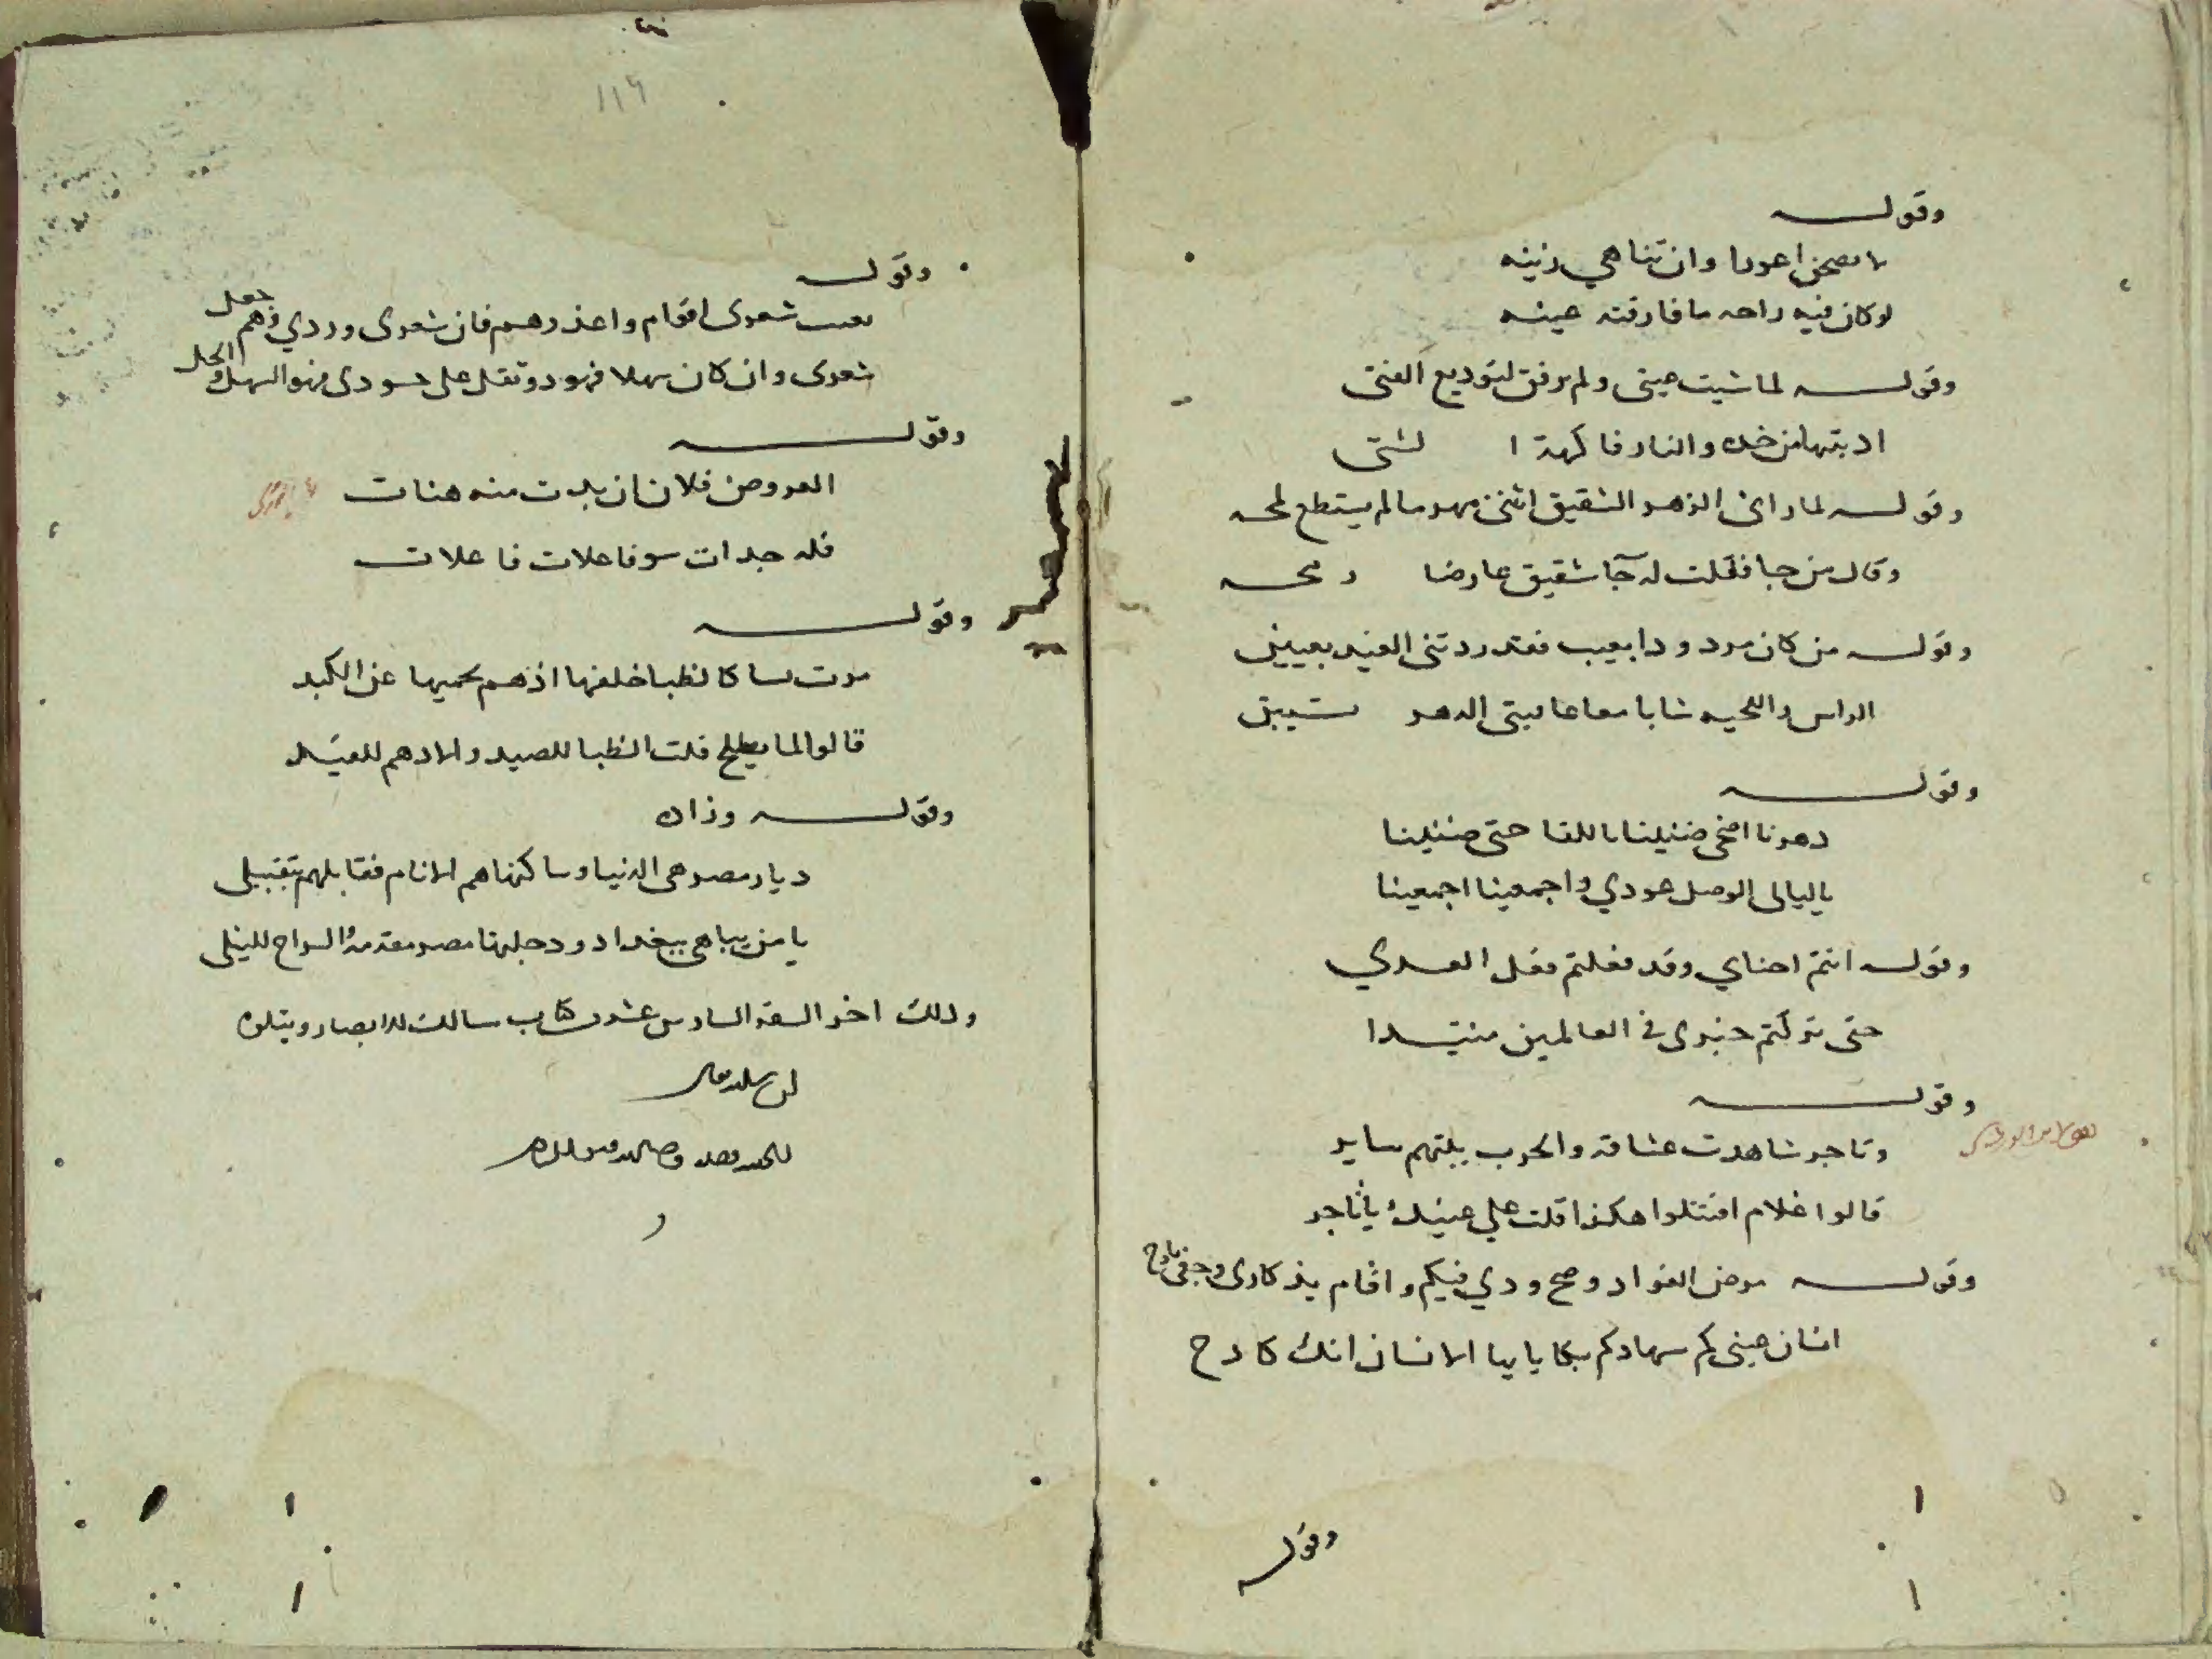 وقوله
لا تصحبن اعورا وان تناهي زينه
لو كان فيه راحه ما فارقته عينه
وقوله لما شتت عيني ولم ترفق لتوديع الفتى
ادنيتها من خده والنار فاكهة ا لشتى
وقوله لما راى الزهر الشقيق انثنى مهزوما لم يستطع لمحه
وقال من جا فقلت له جا شقيق عارضا رمحه
وقوله من كان مردودا بعيب فقد ردتنى الغيد بعيبين
الراس واللحيه شابا معا عاقبنى الدهر بشيبين
وقوله
دهرنا اضحى ضنينا باللقا حتى ضنينا
ياليالى الوصل عودي واجمعينا اجمعينا
وقوله انتم احباي وقد فعلتم فعل العدي
حتى تركتم خبرى فى العالمين مبتدا
وقوله
وتاجر شاهدت عشاقه والحرب بينهم ساير
قالوا علام اقتتلوا هكذا قلت على عينك ياتاجر
وقوله مرض الفواد وصح ودي فيكم واقام تذكارى وجفنى نازح
انسان عينى كم سهاد كم بكا ياايها الانسان انك كادح
وقوله
١١٩
وقوله
شعرى اقوام واعذرهم فان شعرى وردي وهم جعل
شعرى وان كان سهلا فهو ذو ثقل على حسودى فهو السهل والجبل
وقوله
العروضى فلان ان بدت منه هنات
فله جدات سو فاعلات فاعلات
وقوله
مرت نسا كالظبا خلفها ادهم يحميها عن الكيد
قالوا لما يصلح قلت الظبا للصيد والادهم للقيد
وقوله وزاد
ديار مصر هى الدنيا وساكنها هم الانام فقابلهم بتقبيل
يا من يباهى ببغداد ودجلتها مصر مقدمة السراح للنيل
وذلك اخر السفر السادس عشر من كتاب مسالك الابصار ويتلوه